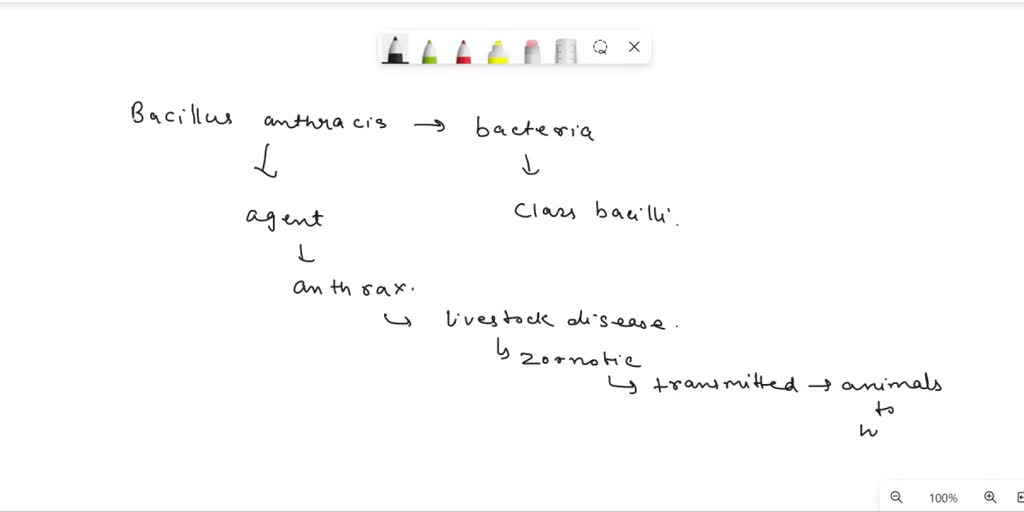 Bacillus anthracis → bacteria
↓ ↓
agent Class bacilli.
↓
anthrax.
↳ livestock disease.
↳ zoonotic
↳ transmitted → animals
to
h
100%